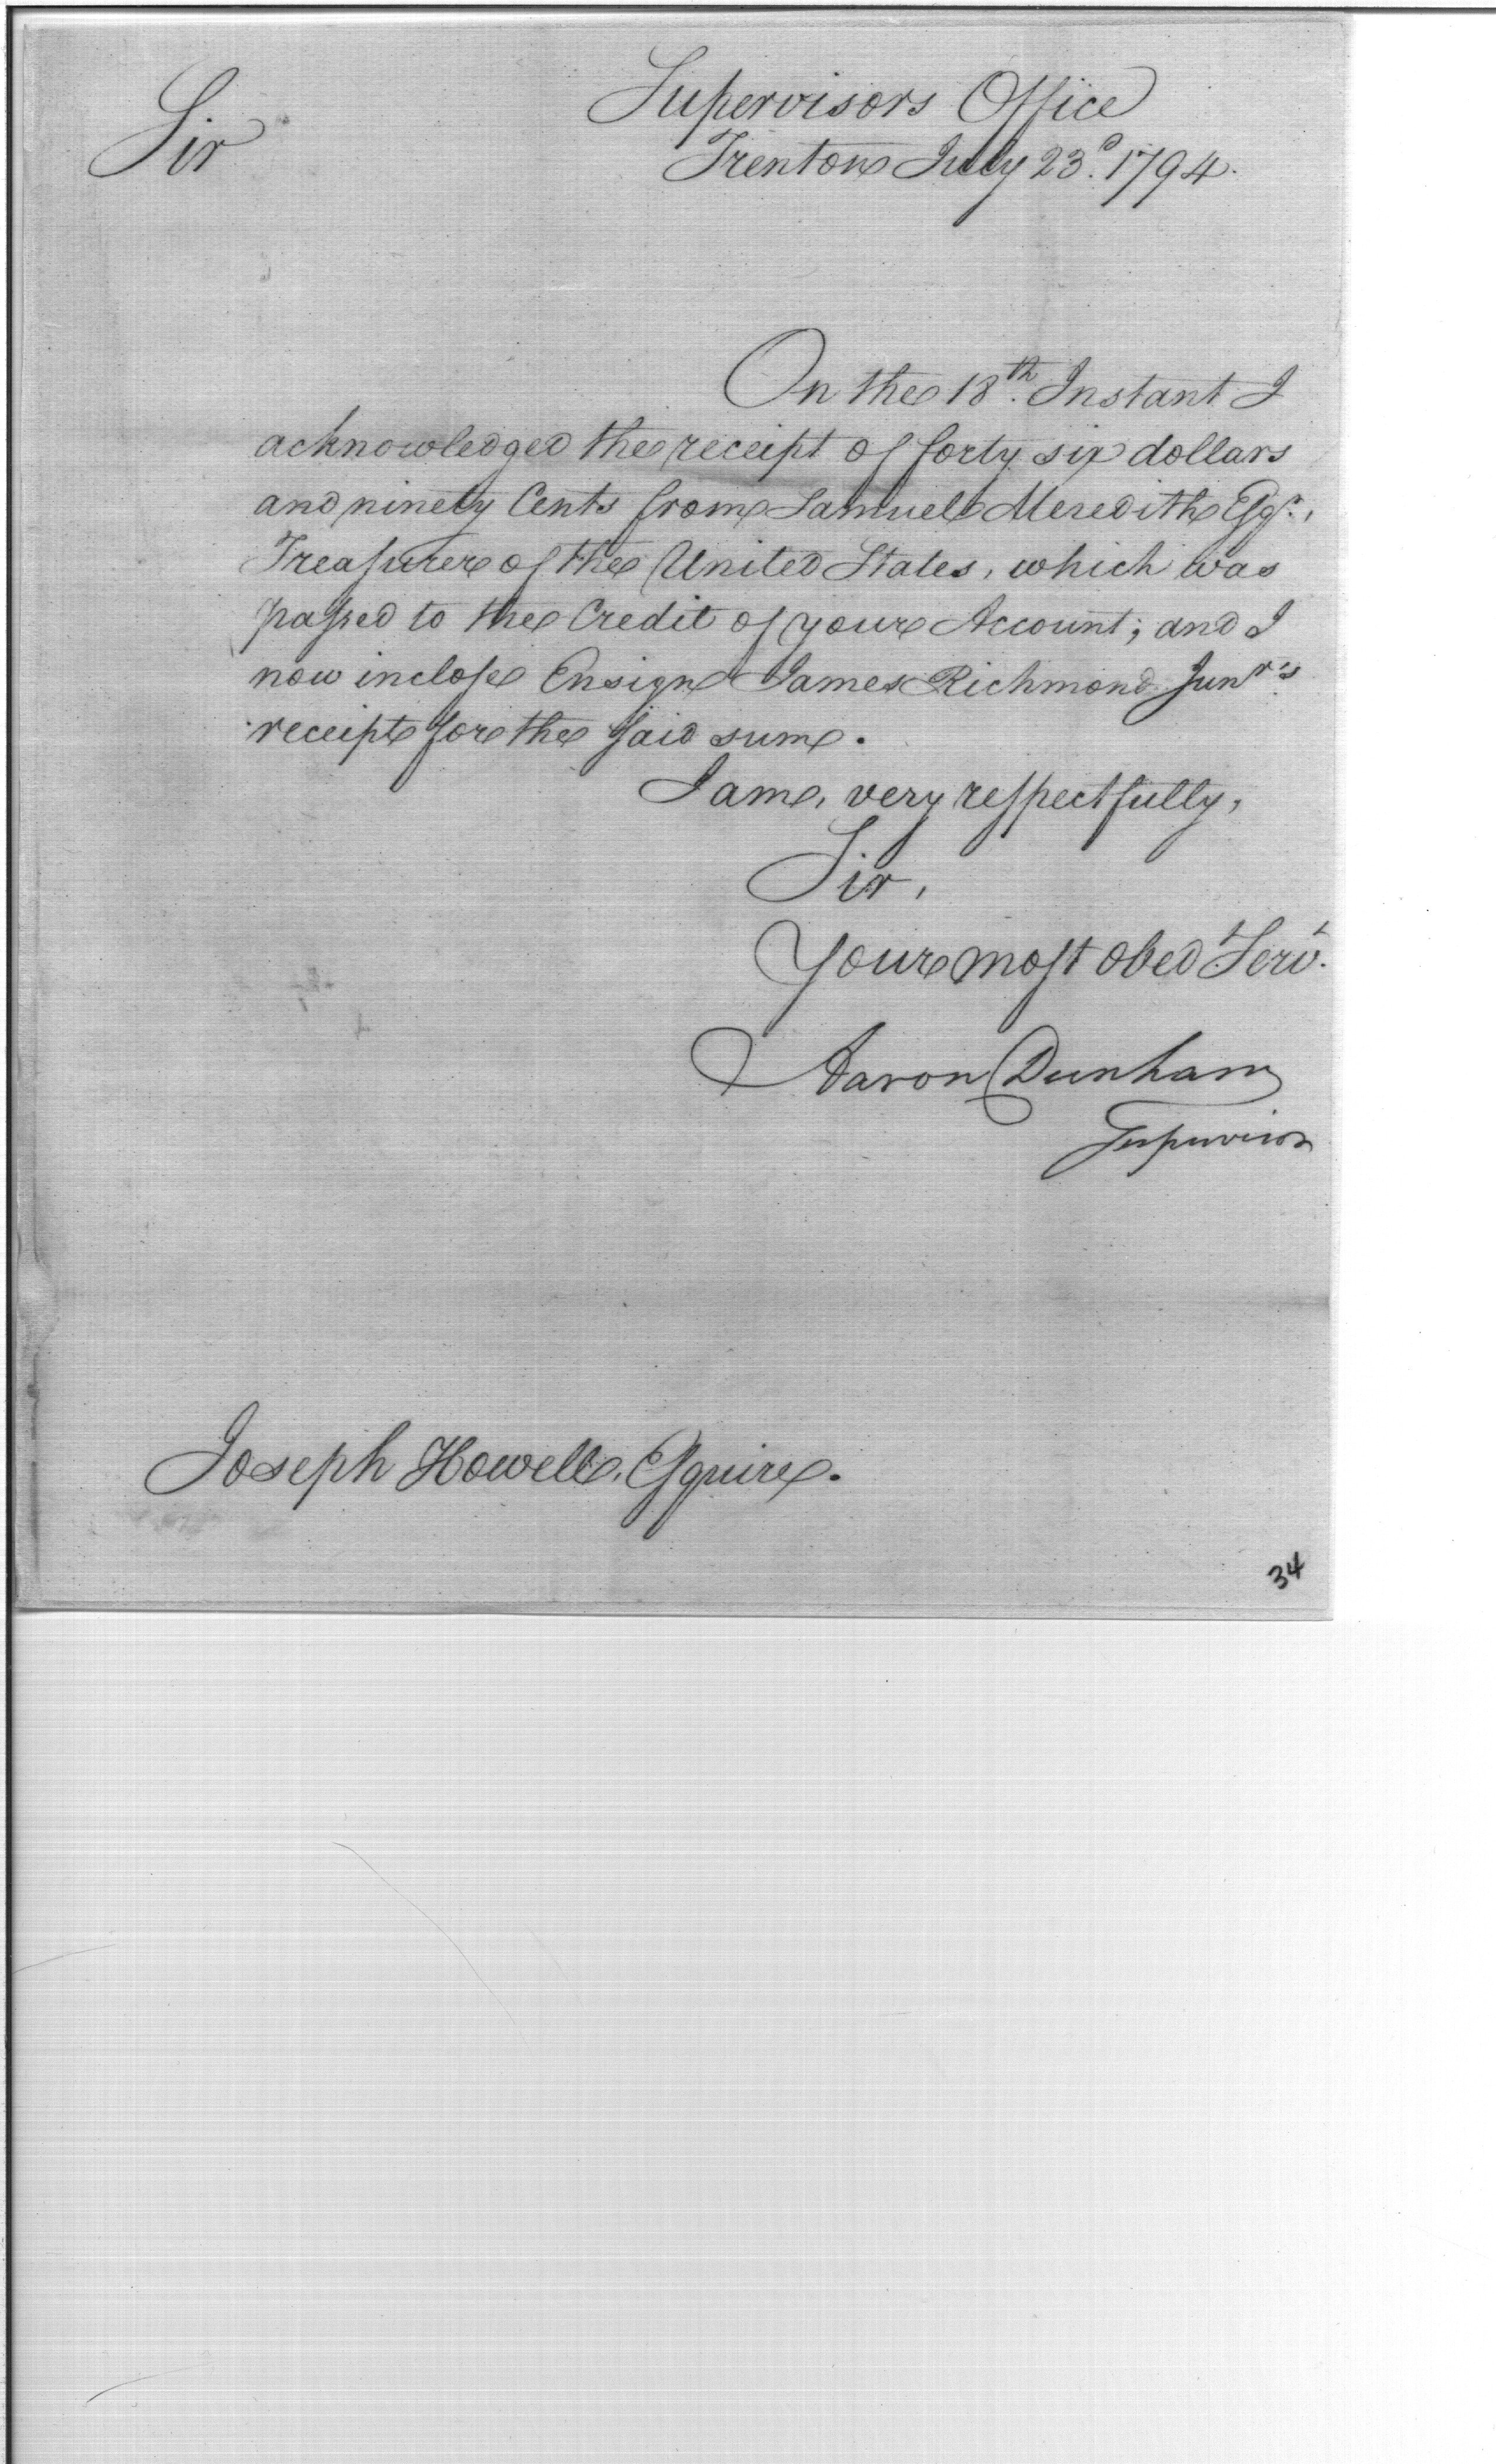 Supervisors Office
Sir
Trenton July 23.d 1794.
On the 18.th Instant I
acknowledged the receipt of forty six dollars
and ninety Cents from Samuel Meredith Esqr.,
Treaſurer of the United States, which was
paſsed to the Credit of your Account; and I
now incloſe Ensign James Richmond Junr's
receipt for the ſaid sum.
I am, very reſpectfully,
Sir,
Your moſt obedt. Servt.
Aaron Dunham
Supervisor
Joseph Howell, Eſquire.
34